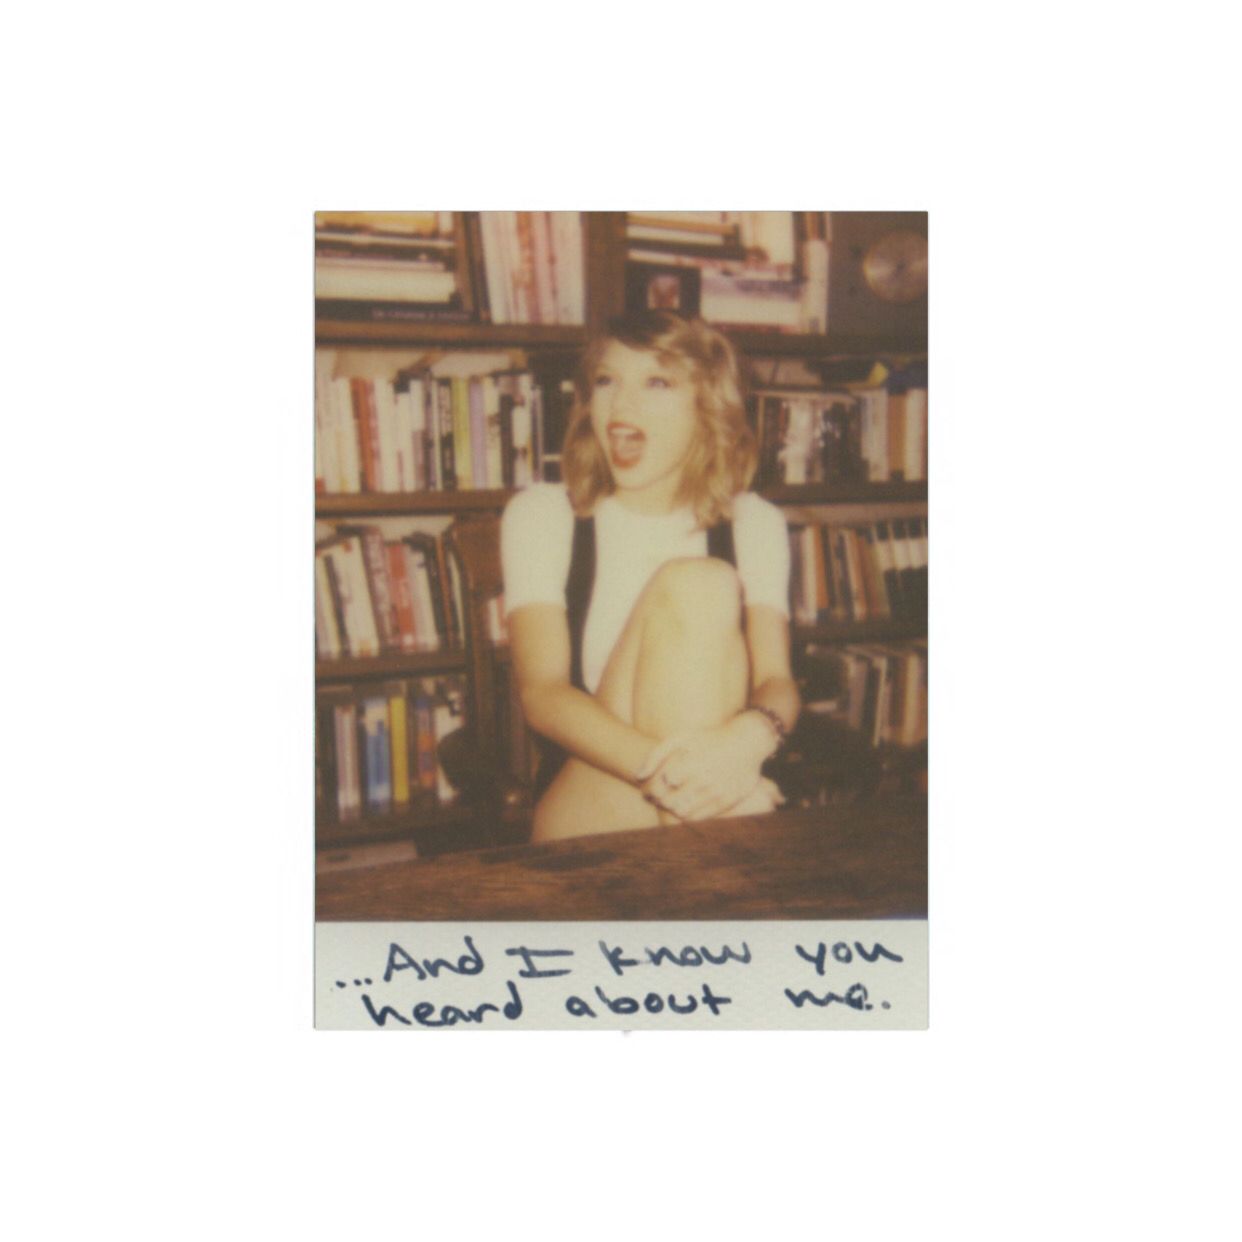 ...And I know you
heard about me..